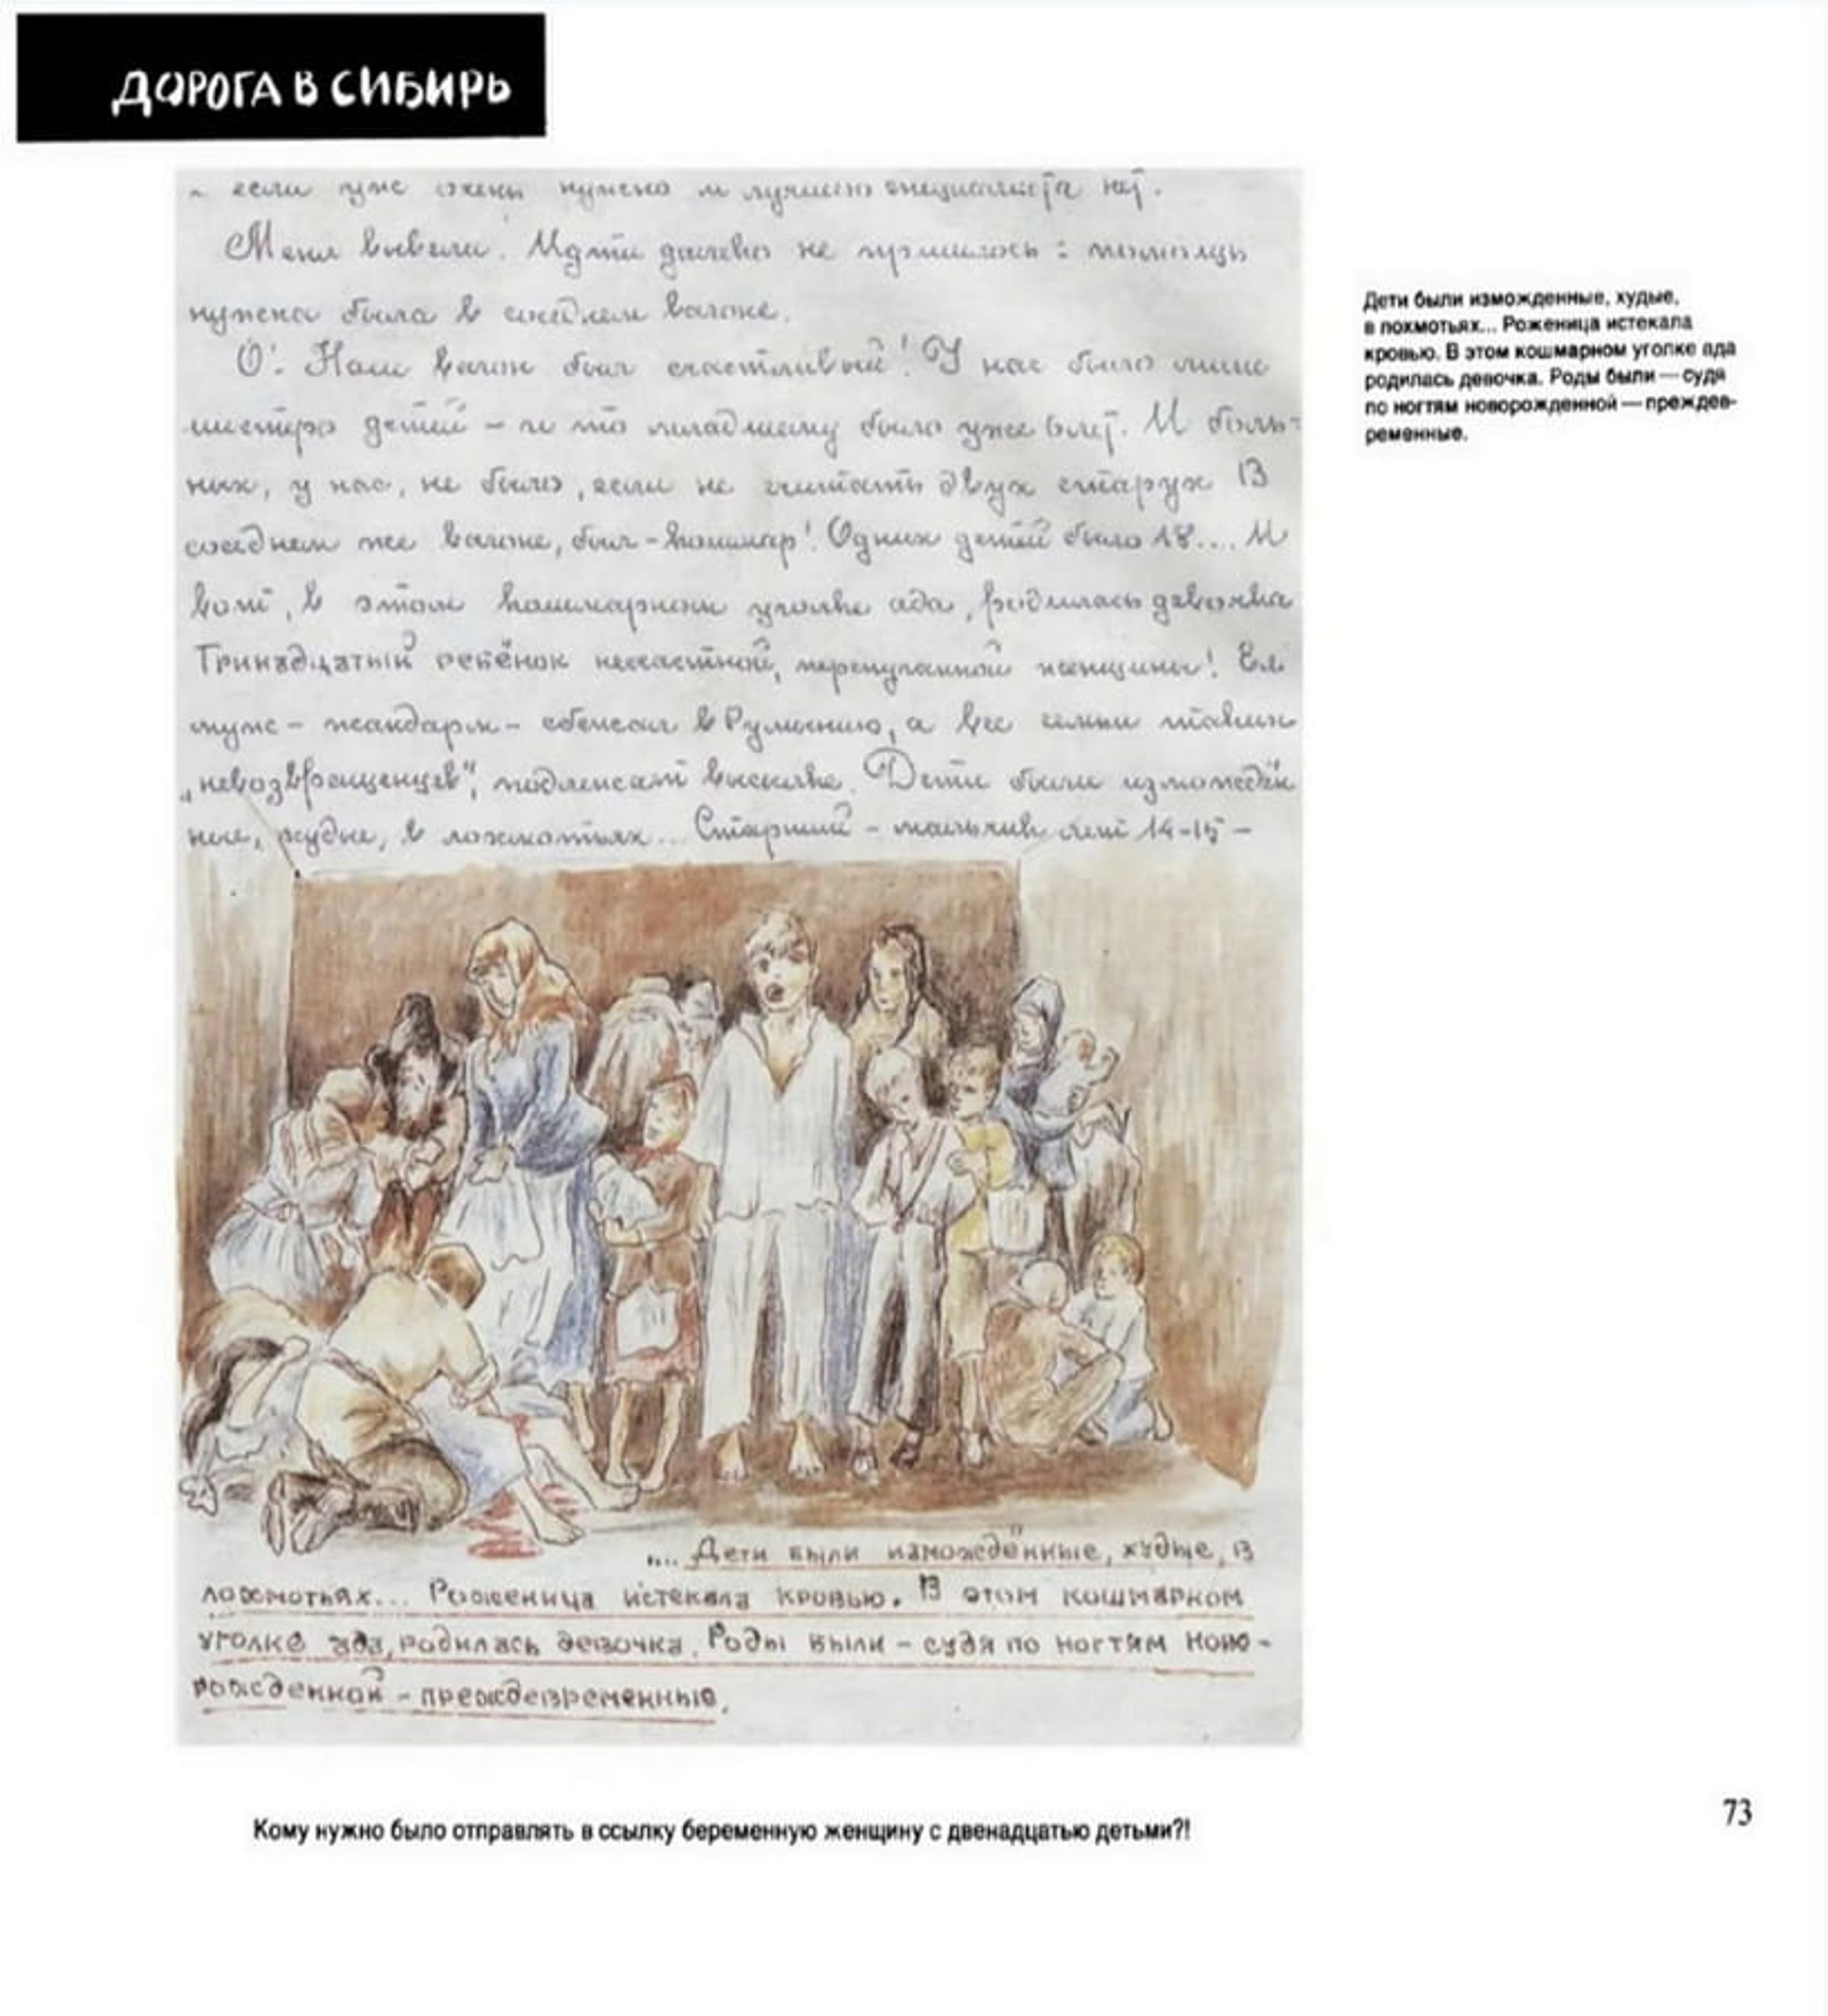 ДОРОГА В СИБИРЬ
- если уже очень нужно и лучшего специалиста нет.
Меня вывели. Идти далеко не пришлось: помощь
нужна была в соседнем вагоне.
О! Наш вагон был счастливый! У нас было лишь
шестеро детей – и то младшему было уже 6 лет. И боль-
ных, у нас, не было, если не считать двух старух. В
соседнем же вагоне, был – кошмар! Одних детей было 18.... И
вот, в этом кошмарном уголке ада, родилась девочка
Тринадцатый ребёнок несчастной, перепуганной женщины! Её
муж – жандарм – сбежал в Румынию, а все семьи таких
„невозвращенцев", подлежат высылке. Дети были измождён
ные, худые, в лохмотьях... Старший – мальчик лет 14-15 –
.... Дети были измождённые, худые, в
лохмотьях... Роженица истекала кровью. В этом кошмарном
уголке ада, родилась девочка. Роды были – судя по ногтям ново-
рожденной – преждевременные.
Дети были изможденные, худые,
в лохмотьях... Роженица истекала
кровью. В этом кошмарном уголке ада
родилась девочка. Роды были — судя
по ногтям новорожденной — преждев-
ременные.
Кому нужно было отправлять в ссылку беременную женщину с двенадцатью детьми?!
73